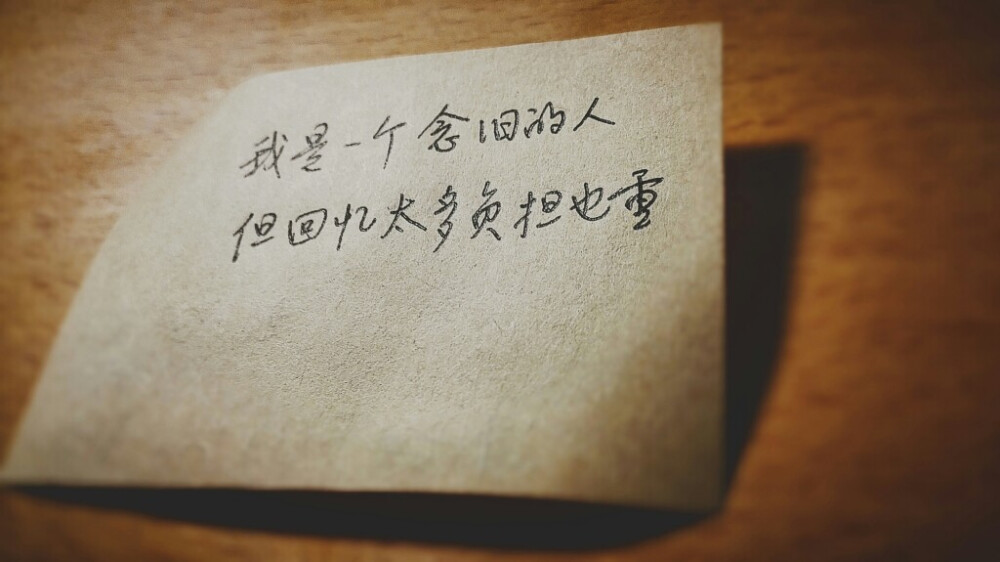 我是一个念旧的人
但回忆太多负担也重